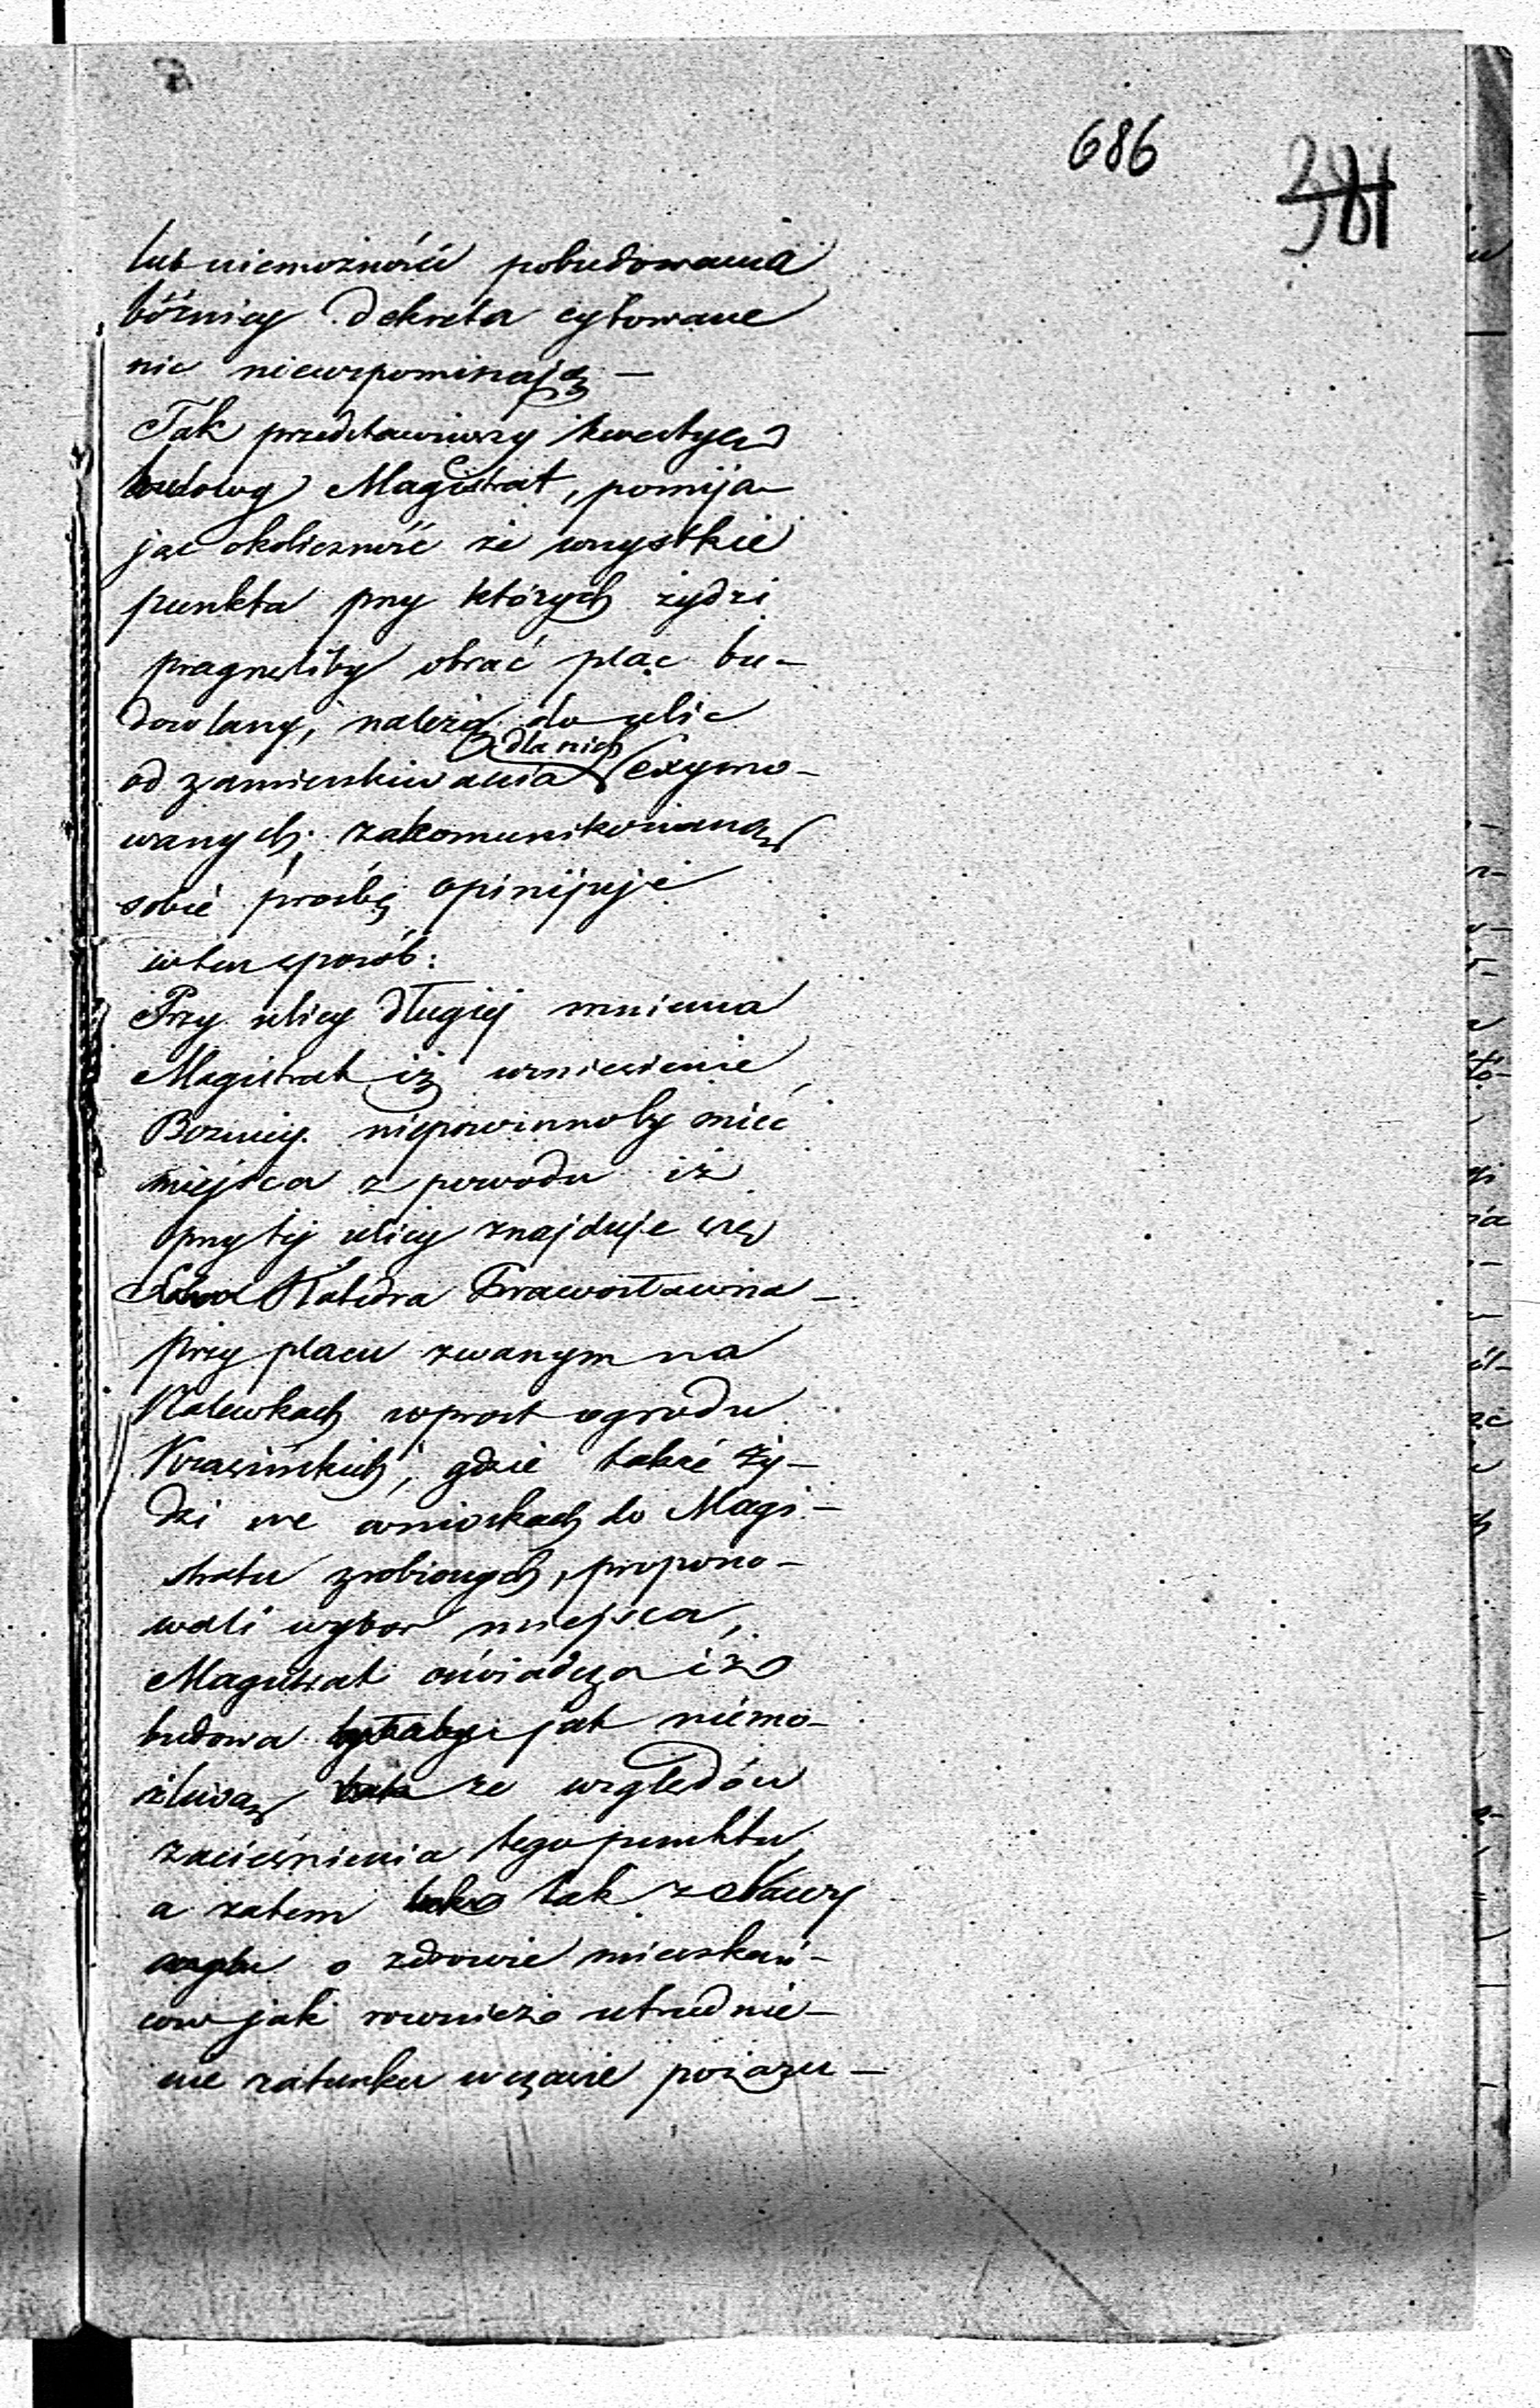 686
381
lub niemożności pobudowania
bóżnicy Dekreta cytowane
nic niewspominają —
Tak przedstawiwszy kwestyę
budowy Magistrat, pomija-
jąc okoliczność że wszystkie
punkta przy których żydzi
pragnęliby obrać plac bu-
dowlany, należą do ulic
dla nich
od zamieszkiwania exymo-
wanych; zakomunikowaną
sobie prośbę opinijuje
w ten sposób:
Przy ulicy Długiej mniema
Magistrat iż wzniesienie
Boznicy niepowinnoby mieć
miejsca z powodu iż
przy tej ulicy znajduje się
Katedra Prawosławna —
przy placu zwanym na
Nalewkach wprost ogrodu
Krasińskich, gdzie także Ży-
dzi we wnioskach do Magi-
stratu zrobionych, propono-
wali wybor miejsca,
Magistrat oświadcza iż
budowa byłaby jak niemo-
żliwą ze względów
zacieśnienia tego punktu,
a zatem tak z obawy
o zdrowie mieszkań-
cow jak rownież utrudnie-
nie ratunku w czasie pożaru —